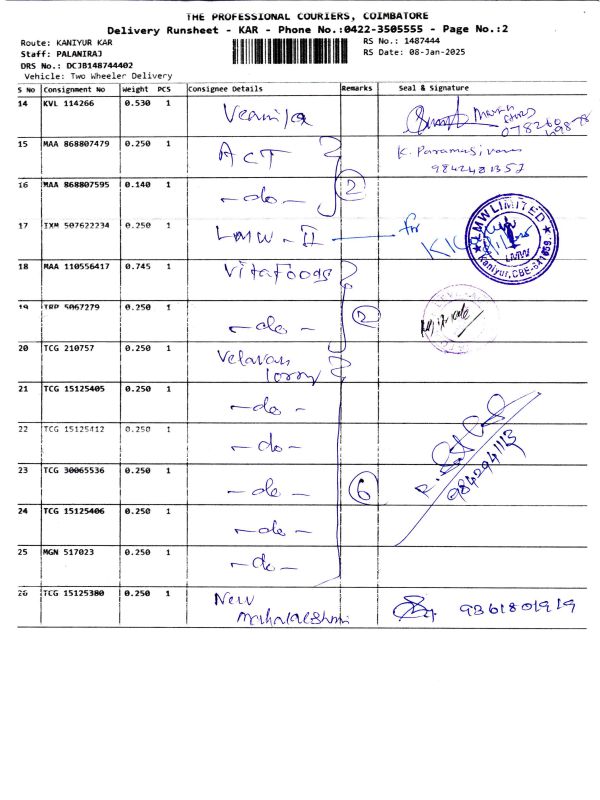 THE PROFESSIONAL COURIERS, COIMBATORE
Delivery Runsheet - KAR - Phone No.:0422-3505555 - Page No.:2
Route: KANIYUR KAR
RS No.: 1487444
Staff: PALANIRAJ
RS Date: 08-Jan-2025
DRS No.: DCJB148744402
Vehicle: Two Wheeler Delivery
S No Consignment No Weight PCS Consignee Details Remarks Seal & Signature
14 KVL 114266 0.530 1
15 MAA 868807479 0.250 1 ACT K. Paramasivam
9842481352
16 MAA 868807595 0.140 1 -do- 2
17 IXM 507622234 0.250 1 LMW - II for
LMW LIMITED
LMW
Kaniyur, CBE-641659.
18 MAA 110556417 0.745 1 Vitafoods
19 TRP 5067279 0.250 1 -do- 2
20 TCG 210757 0.250 1 Velavan
lorry
21 TCG 15125405 0.250 1 -do-
22 TCG 15125412 0.250 1 -do-
23 TCG 30065536 0.250 1 -do- 6
9842941113
24 TCG 15125406 0.250 1 -do-
25 MGN 517023 0.250 1 -do-
26 TCG 15125380 0.250 1 New
Mahalakshmi
9361801919